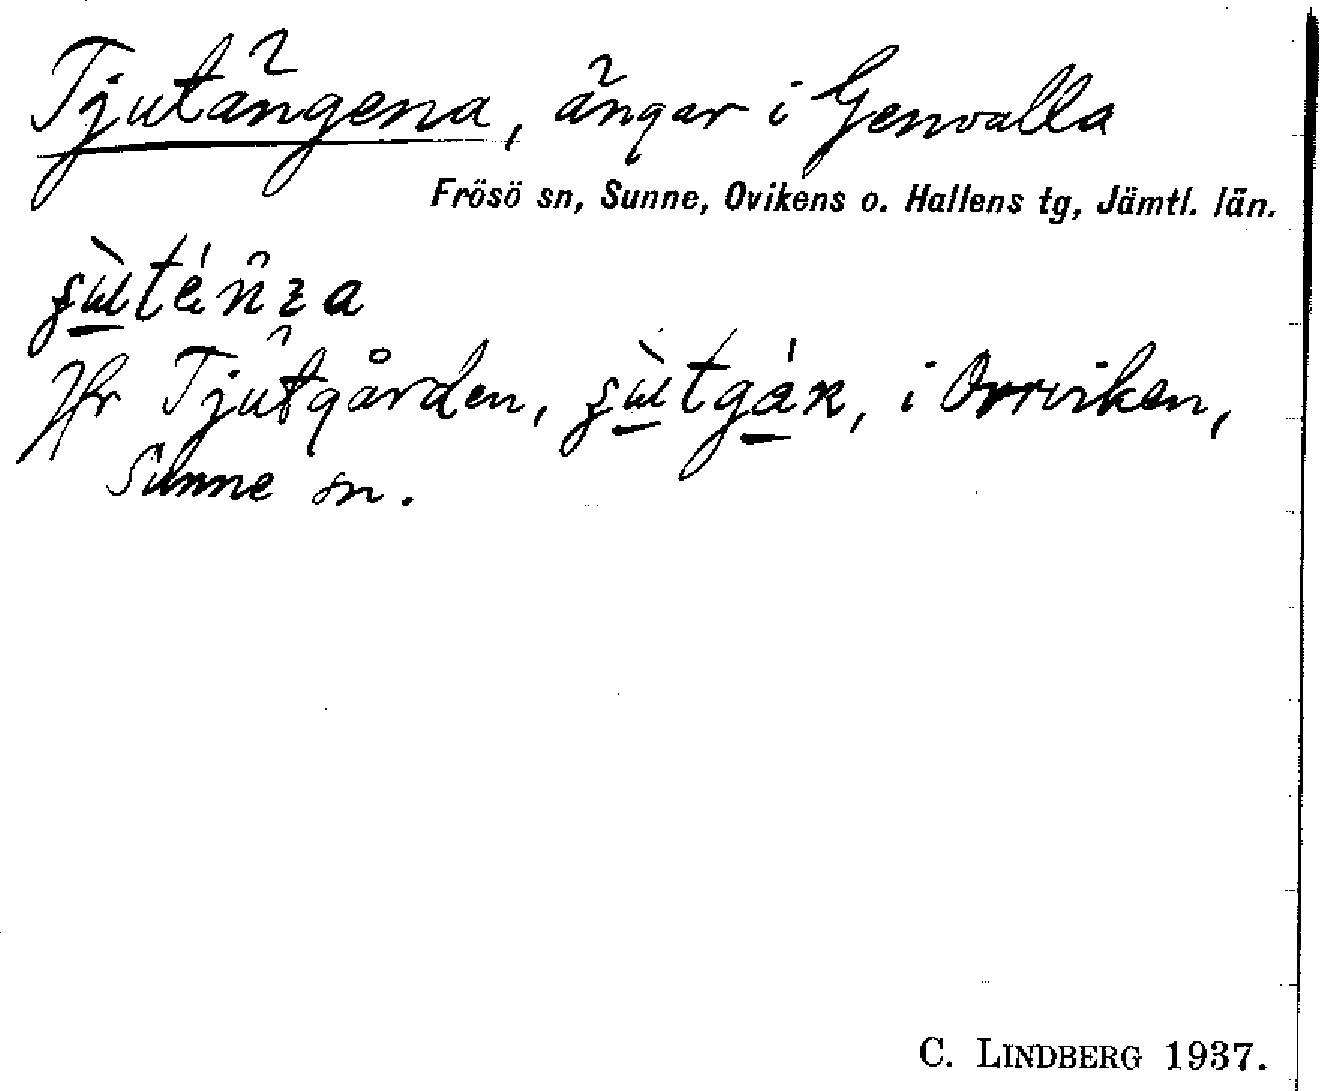 Tjutängena, ängar i Genvalla
Frösö sn, Sunne, Ovikens o. Hallens tg, Jämtl. län.
Jfr Tjutgården, i Orrviken,
Sunne sn.
C. LINDBERG 1937.